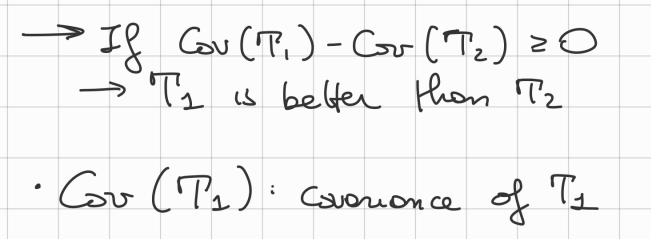 → If Cov(T₁) - Cov(T₂) ≥ 0
→ T₁ is better than T₂
· Cov(T₁): covariance of T₁